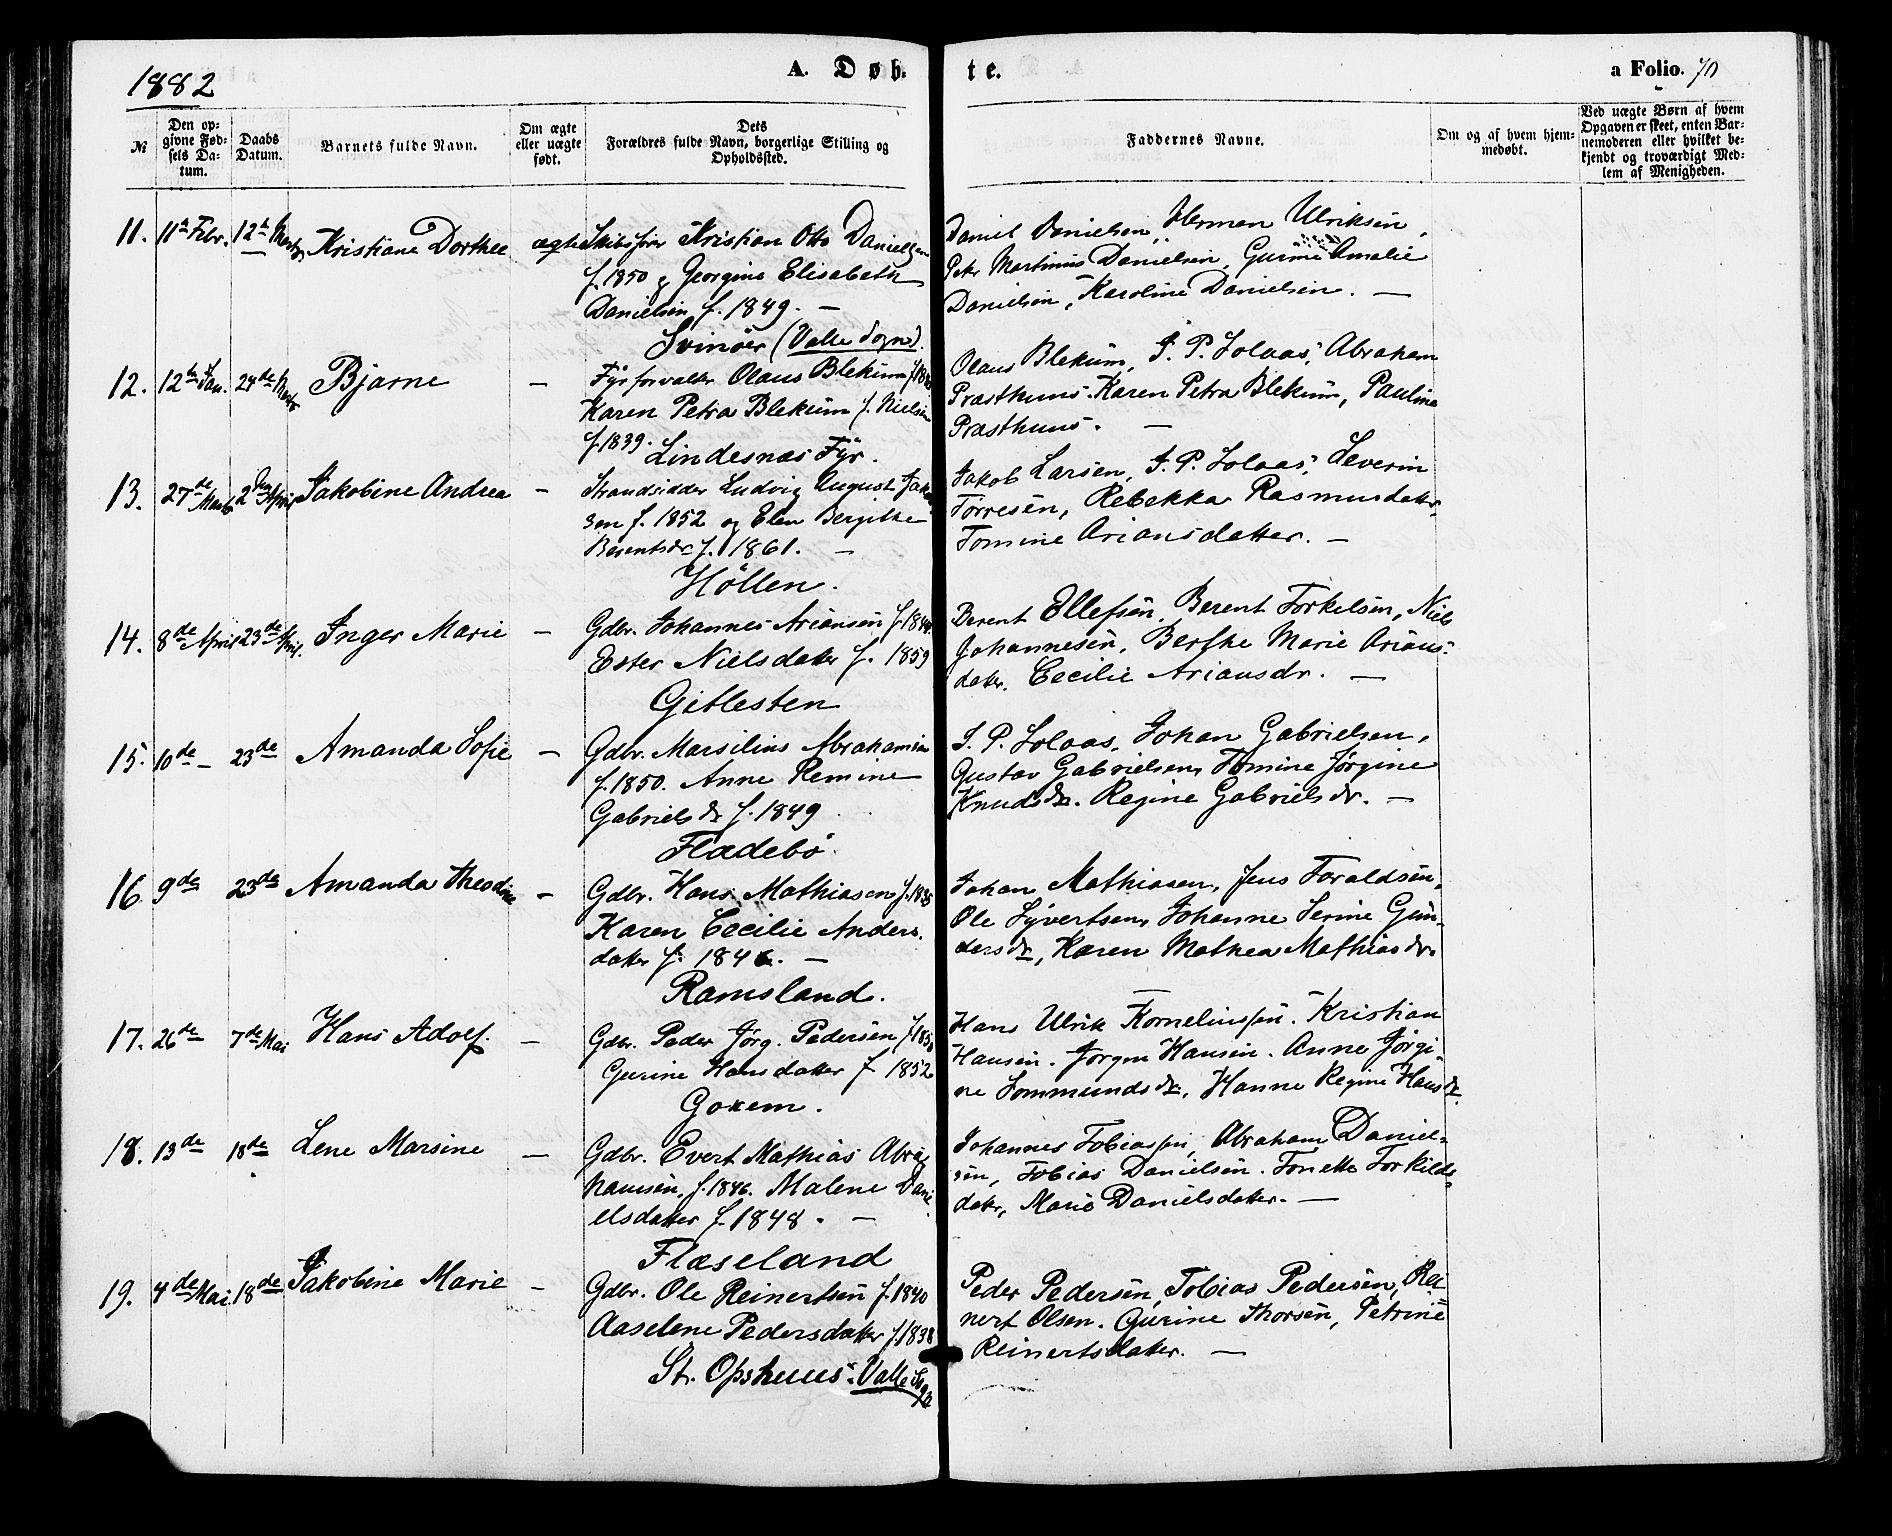 1882
A. Døb-
te.
a Folio. 70
№
Den op-
givne Fød-
sels Da-
tum.
Daabs
Datum.
Barnets fulde Navn.
Om ægte
eller uægte
født.
Dets
Forældres fulde Navn, borgerlige Stilling og
Opholdssted.
Faddernes Navne.
Om og af hvem hjem-
medøbt.
Ved uægte Børn af hvem
Opgaven er skeet, enten Bar-
nemoderen eller hvilket be-
kjendt og troværdigt Med-
lem af Menigheden.
11. 11te Febr. 12te Marts Kristiane Dorthee ægte
Skibsfører Kristian Otto Danielsen
f. 1850 og Georgine Elisabeth
Danielsen f. 1849. —
Svinöer (Valle Sogn).
Daniel Danielsen, Herman Ulriksen,
Peter Martinius Danielsen, Gurine Amalie
Danielsen, Karoline Danielsen. —
12. 12te Jan. 24de Marts Bjarne —
Fyrforvalter Olaus Blekum
Karen Petra Blekum f. Nielsen
f. 1839.
Lindesnæs Fyr.
Olaus Blekum, J. P. Lolaas, Abraham
Præsthuus. Karen Petra Blekum, Pauline
Præsthuus. —
13. 27de Marts 2den April Jakobine Andrea —
Strandsidder Ludvig August Jakob
sen f. 1852 og Elen Bergithe
Berentsdr f. 1861. —
Höllen.
Jakob Larsen, J. P. Lolaas, Severin
Torresen, Rebekka Rasmusdatter,
Tomine Ariansdatter. —
14. 8de April 23de April. Inger Marie —
Gdbr. Johannes Ariansen f. 1844.
Ester Nielsdatter f. 1859
Gitlesten
Berent Ellefsen, Berent Torkelsen, Niels
Johannesen, Berthe Marie Arians-
datter. Cecilie Ariansdr. —
15. 10de — 23de Amanda Sofie —
Gdbr. Marsilius Abrahamsen
f. 1850. Anne Remine
Gabrielsdr f. 1849
Fladebö.
J. P. Lolaas, Johan Gabrielsen,
Gustav Gabrielsen, Tomine Jørgine
Knudsdr. Regine Gabrielsdr. —
16. 9de 23de Amanda Theodine —
Gdbr. Hans Mathiasen f. 1838
Karen Cecilie Anders.
datter f. 1846. —
Ramsland.
Johan Mathiasen, Jens Toraldsen,
Ole Syvertsen, Johanne Serine Gun-
dersdr, Karen Mathea Mathiasdr.
17. 26de 7de Mai Hans Adolf. —
Gdbr. Peder Jørg. Pedersen f. 1850
Gurine Hansdatter f 1852
Goxem.
Hans Ulrik Korneliussen. Kristian
Hansen. Jørgen Hansen. Anne Jørgi-
ne Sommundsdr, Hanne Regine Hansdr.
18. 13de 18de Lene Marsine —
Gdbr. Evert Mathias Abra-
hamsen, f. 1846. Malene Dani
elsdatter f. 1848. —
Flæseland
Johannes Tobiassen, Abraham Daniel-
sen, Tobias Danielsen. Tonette Torkilds-
datter, Marie Danielsdatter. —
19. 4de Mai. 18de Jakobine Marie —
Gdbr. Ole Reinertsen f. 1840
Aaselene Pedersdatter f. 1838
St. Opshuus. Valle Sogn
Peder Pedersen, Tobias Pedersen, Rei-
nert Olsen. Gurine Thorsen, Petrine
Reinertsdatter. —